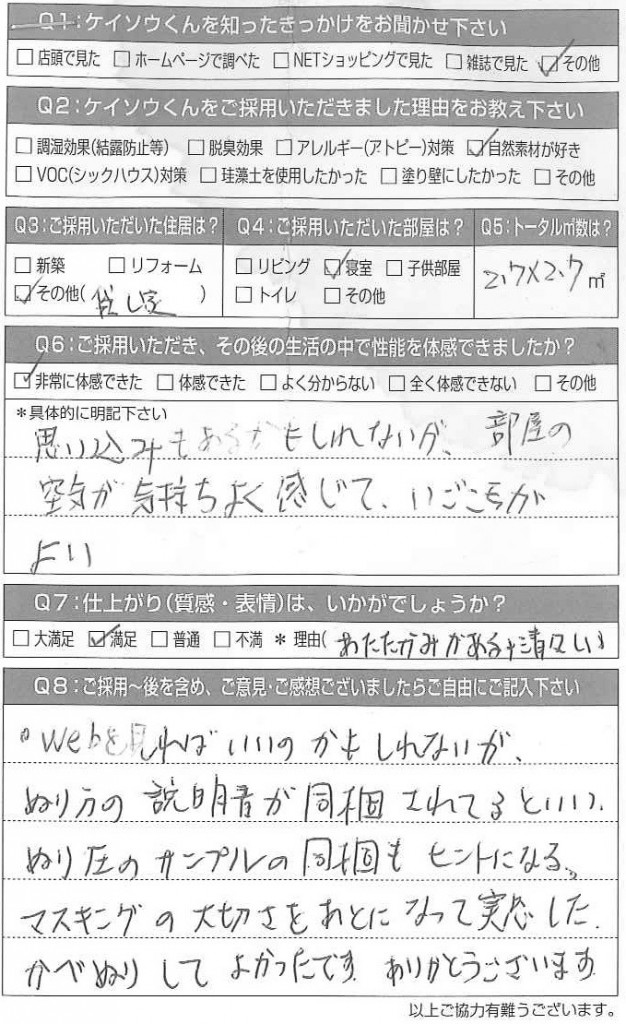 Q1:ケイソウくんを知ったきっかけをお聞かせ下さい
□店頭で見た □ホームページで調べた □NETショッピングで見た □雑誌で見た ☑その他
Q2:ケイソウくんをご採用いただきました理由をお教え下さい
□調湿効果(結露防止等) □脱臭効果 □アレルギー(アトピー)対策 ☑自然素材が好き
□VOC(シックハウス)対策 □珪藻土を使用したかった □塗り壁にしたかった □その他
Q3:ご採用いただいた住居は?
□新築 □リフォーム
☑その他(貸し家)
Q4:ご採用いただいた部屋は?
□リビング ☑寝室 □子供部屋
□トイレ □その他
Q5:トータル㎡数は?
2.7×2.7㎡
Q6:ご採用いただき、その後の生活の中で性能を体感できましたか?
☑非常に体感できた □体感できた □よく分からない □全く体感できない □その他
*具体的に明記下さい
思い込みもあるかもしれないが、部屋の
空気が気持ちよく感じて、いごこちが
よい
Q7:仕上がり(質感・表情)は、いかがでしょうか?
□大満足 ☑満足 □普通 □不満 *理由(あたたかみがある+清々しい)
Q8:ご採用~後を含め、ご意見・ご感想ございましたらご自由にご記入下さい
Webを見ればいいのかもしれないが、
ぬり方の説明書が同梱されてるといい。
ぬり圧のサンプルの同梱もヒントになる。
マスキングの大切さをあとになって実感した。
かべぬりしてよかったです。ありがとうございます
以上ご協力有難うございます。